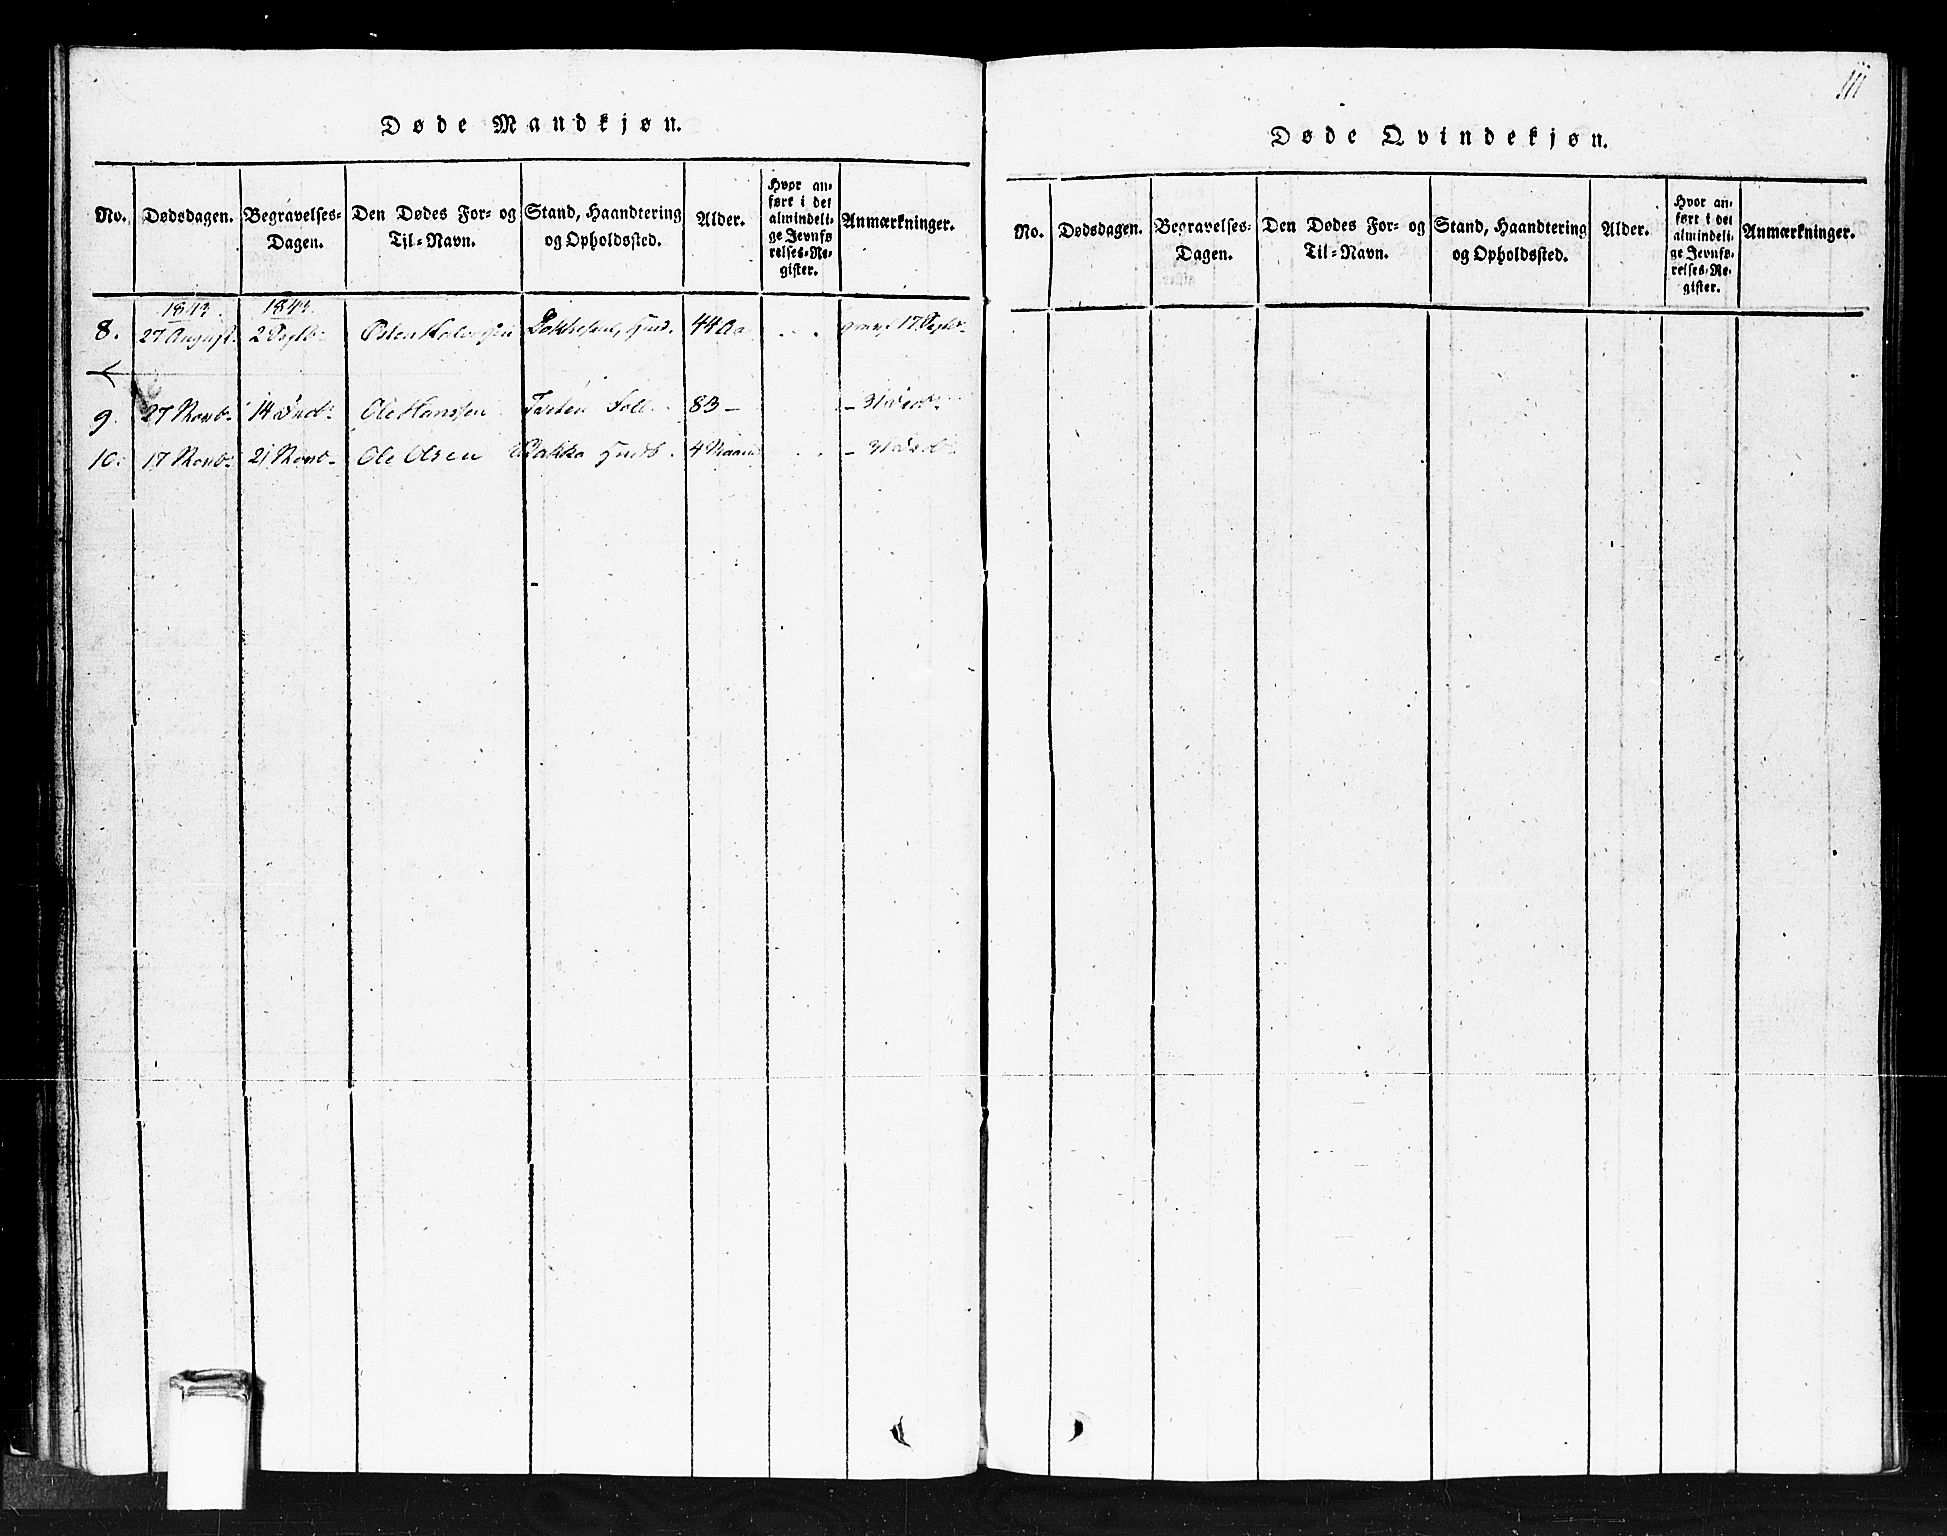 111
Døde Mandkjøn.
No. Dødsdagen. Begravelses-Dagen. Den Dødes For- og Til-Navn. Stand, Haandtering og Opholdssted. Alder. Hvor anført i det almindelige Jevnførelses-Register. Anmærkninger.
1844. 1844.
8. 27 August. 2 Septbr Østen 44 Aar 17 Septbr
9. 27 Novbr 14 Decbr Ole Hanssen Tveten 83 – – 31 Decbr
10. 17 Novbr 21 Novbr Ole Olsen Bakka 4 Maan – 31 Decbr
Døde Qvindekjøn.
No. Dødsdagen. Begravelses-Dagen. Den Dødes For- og Til-Navn. Stand, Haandtering og Opholdssted. Alder. Hvor anført i det almindelige Jevnførelses-Register. Anmærkninger.